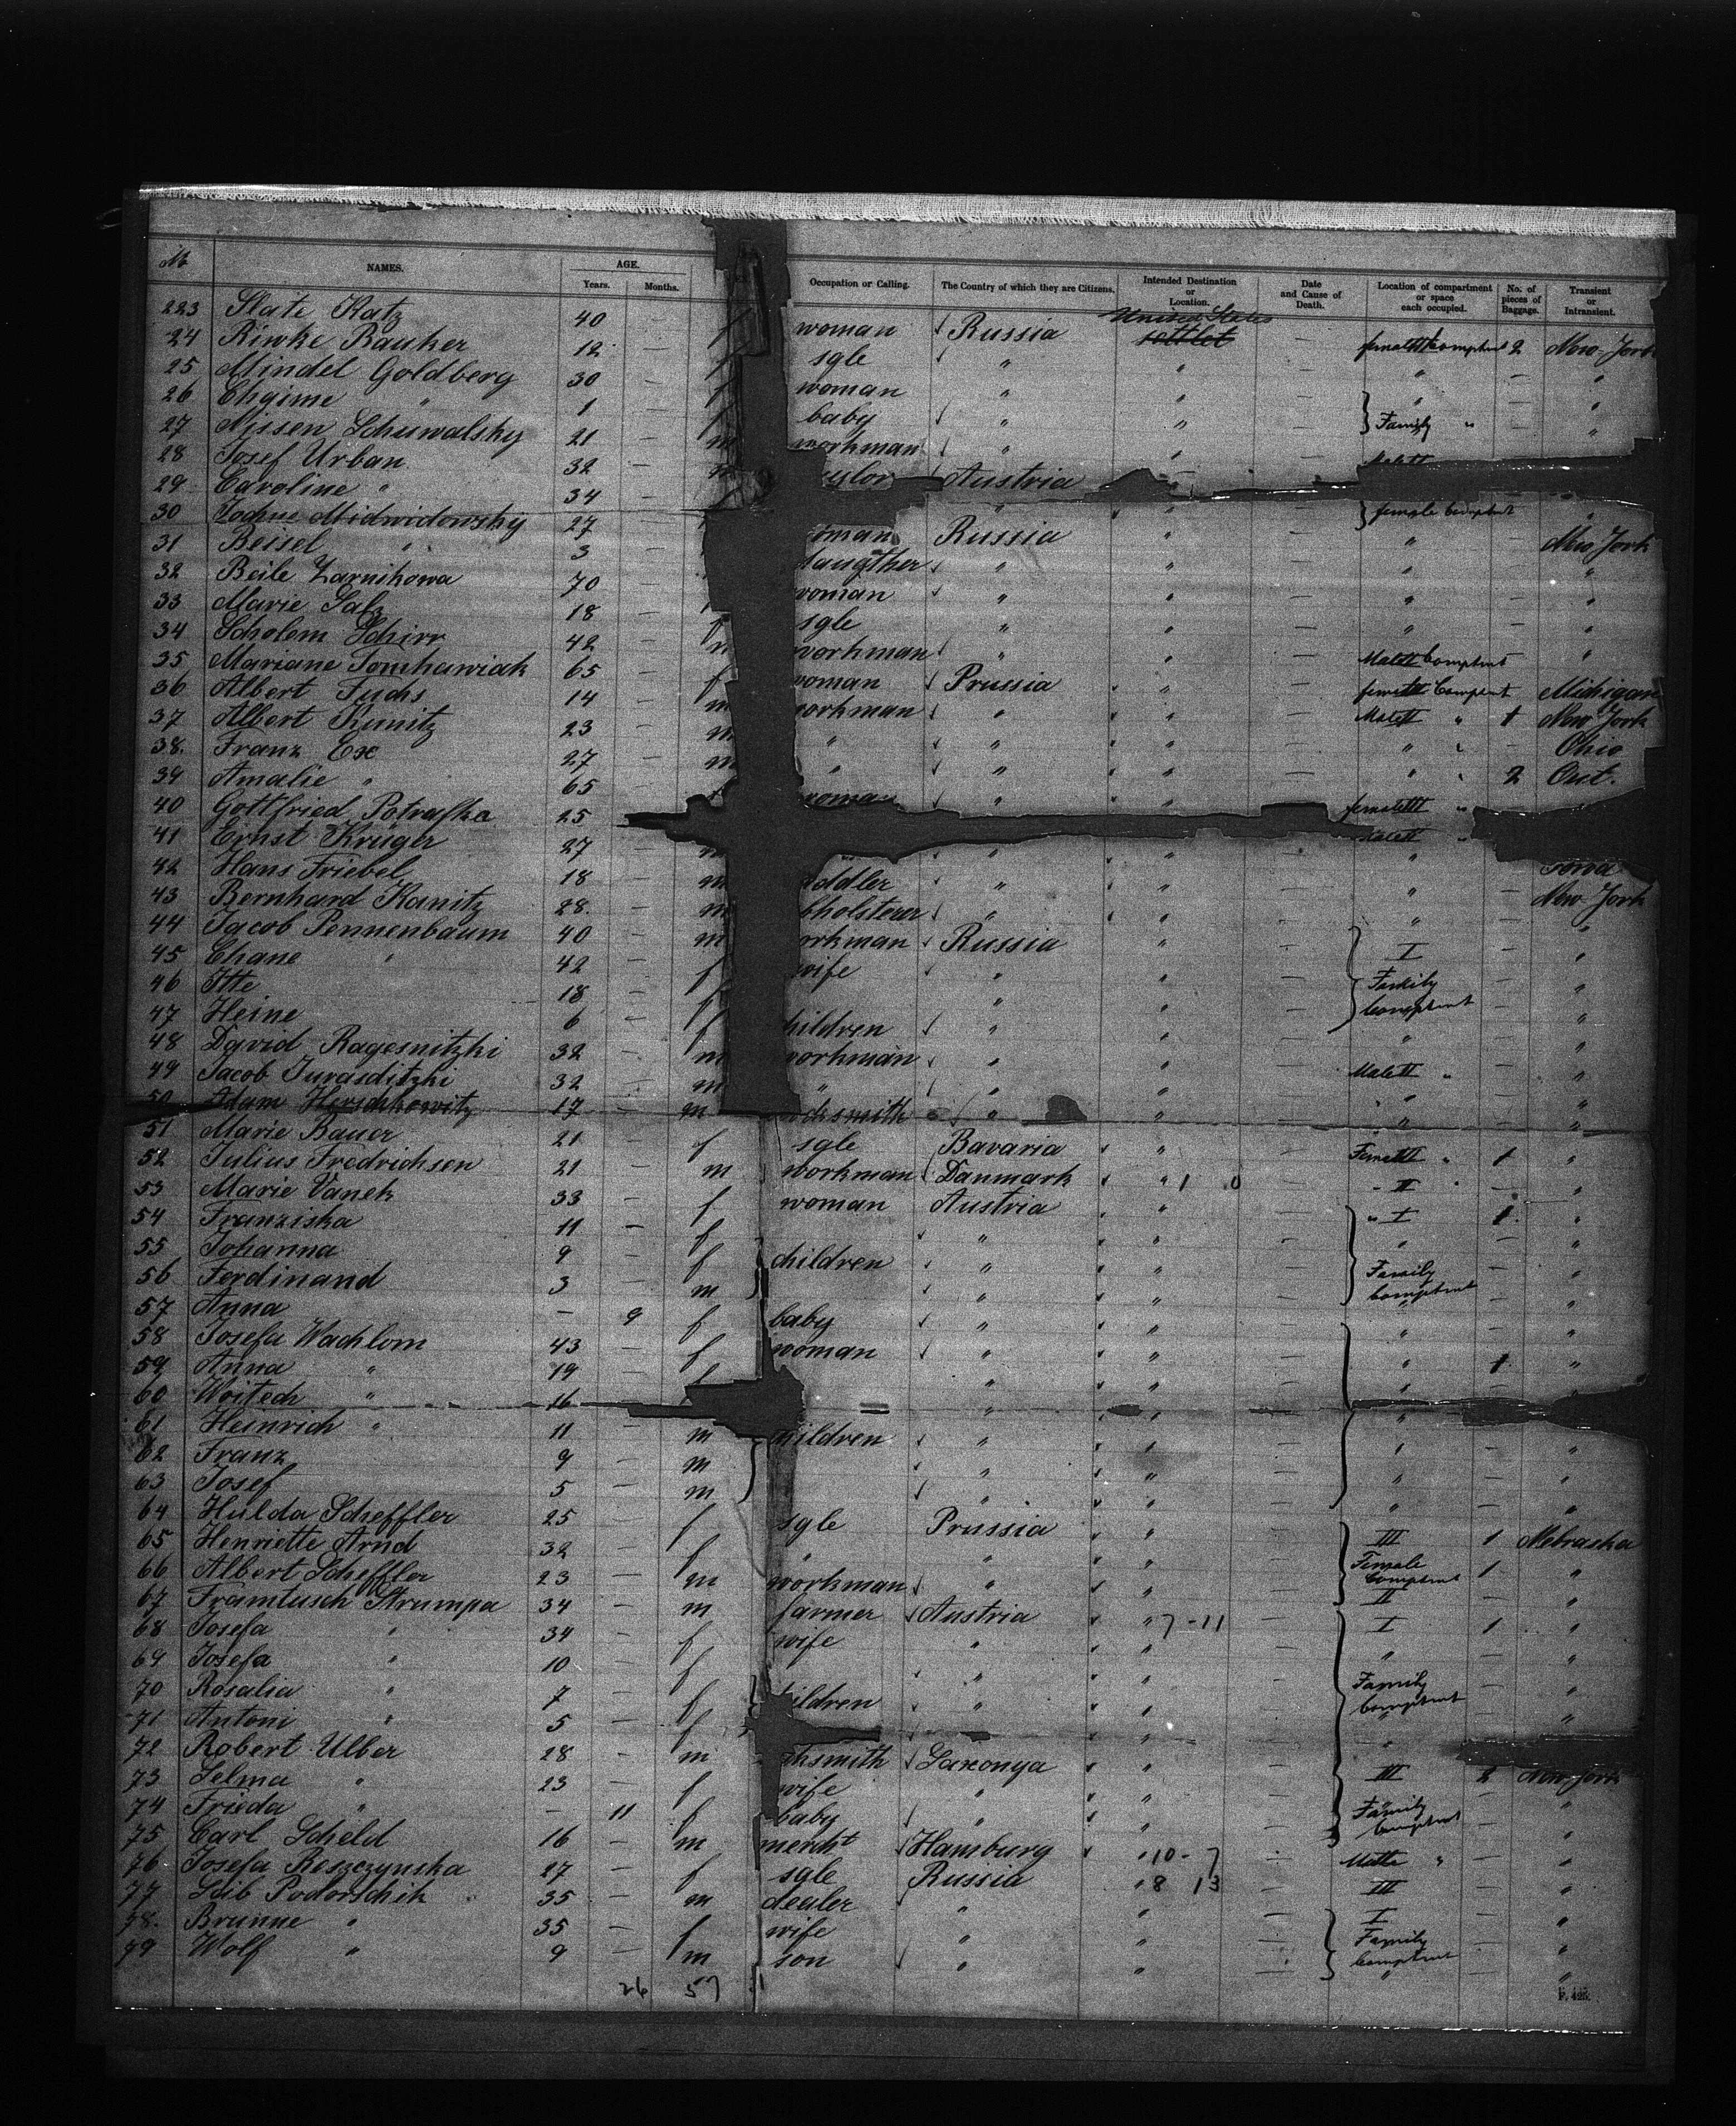 № NAMES. AGE. Years. Months. Occupation or Calling. The Country of which they are Citizens. Intended Destination or Location. Date and Cause of Death. Location of compartment or space each occupied. No. of pieces of Baggage. Transient or Intransient.
223 Slate Katz 40 — f woman Russia United States — 2 New-York
24 Riwke Bauker 12 — f sgle " " — " — "
25 Mindel Goldberg 30 — f woman " " — " — "
26 Chaime " 1 — f baby " " — Family " — "
27 Nissen Schuwalsky 21 — m workman "
28 Josef Urban 32 — Austria
29 Caroline " 34 — " female Comptmt "
30 Midwidowsky 27 — Russia " — " New York
31 Beisel " 3 — daugther " " — " — "
32 Beile Zarnikowa 70 — woman " " — " — "
33 Marie Salz 18 — sgle " " — " — "
34 Scholem Schirr 42 — m workman " " — Male II Comptmt — "
35 Mariane Tomhawiak 65 — f woman Prussia " — Comptmt — Michigan
36 Albert Fuchs 14 — m workman " " — Male II " 1 New York
37 Albert Kunitz 23 — m " " " — " " — Ohio
38. Franz Exe 27 — m " " " — " " 2 Out.
39 Amalie " 65 — woman " " — female III "
40 Gottfried Potrafka 25
41 Ernst Krüger 27 — m " " — " Iowa
42 Hans Friebel 18 — m " " — " — New York
43 Bernhard Kanitz 28. — m " " — " — "
44 Jacob Pennenbaum 40 — m workman Russia " — I — "
45 Chane " 42 — f wife " " — Family — "
46 Itte 18 — f " " — Comptmt — "
47 Heine 6 — f children " " — " — "
48 David Ragesnitzki 32 — m workman " " — Male II " — "
49 Jacob Jurasditzki 32 — m " " " — " — "
50 Adam Herschkowitz 17 — m " " — " — "
51 Marie Bauer 21 — f sgle Bavaria " — " 1 "
52 Julius Fredrichsen 21 — m workman Danmark " 1 0 — " II " — "
53 Marie Vanek 33 — f woman Austria " — " I 1. "
54 Franziska 11 — f " " — " — "
55 Johanna 9 — f children " " — Family — "
56 Ferdinand 3 — m " " — Comptmt — "
57 Anna — 9 f baby " " — " — "
58 Josefa Wachlom 43 — f woman " " — " 1 "
59 Anna " 19 — f " " — " — "
60 Woitech " 16 " " — "
61 Heinrich " 11 — m children " " — " — "
62 Franz 9 — m " " — " — "
63 Josef 5 — m " " — " — "
64 Hulda Scheffler 25 — f sgle Prussia " — III 1 Nebraska
65 Henriette Arnd 32 — f " " " — Female Comptmt 1 "
66 Albert Scheffler 23 — m workman " " — II — "
67 Framtusch Strumpa 34 — m farmer Austria " 7 - 11 — I 1 "
68 Josefa " 34 — f wife " " — " — "
69 Josefa " 10 — f " " — Family — "
70 Rosalia " 7 — f children " " — Comptmt — "
71 Antoni " 5 — f " — "
72 Robert Ulber 28 — m Saxonya " — III 2 New-York
73 Selma " 23 — f wife " " — Family — "
74 Frieda " — 11 f baby " " — Comptmt — "
75 Carl Scheld 16 — m mercht Hamburg " 10 - 7 — " — "
76 Josefa Reszczynska 27 — f sgle Russia " 8 13 — III — "
77 Leib Podorschik 35 — m dealer " " — I — "
78. Brunne " 35 — f wife " " — Family — "
79 Wolf " 9 — m son " " — Comptmt — "
26 57